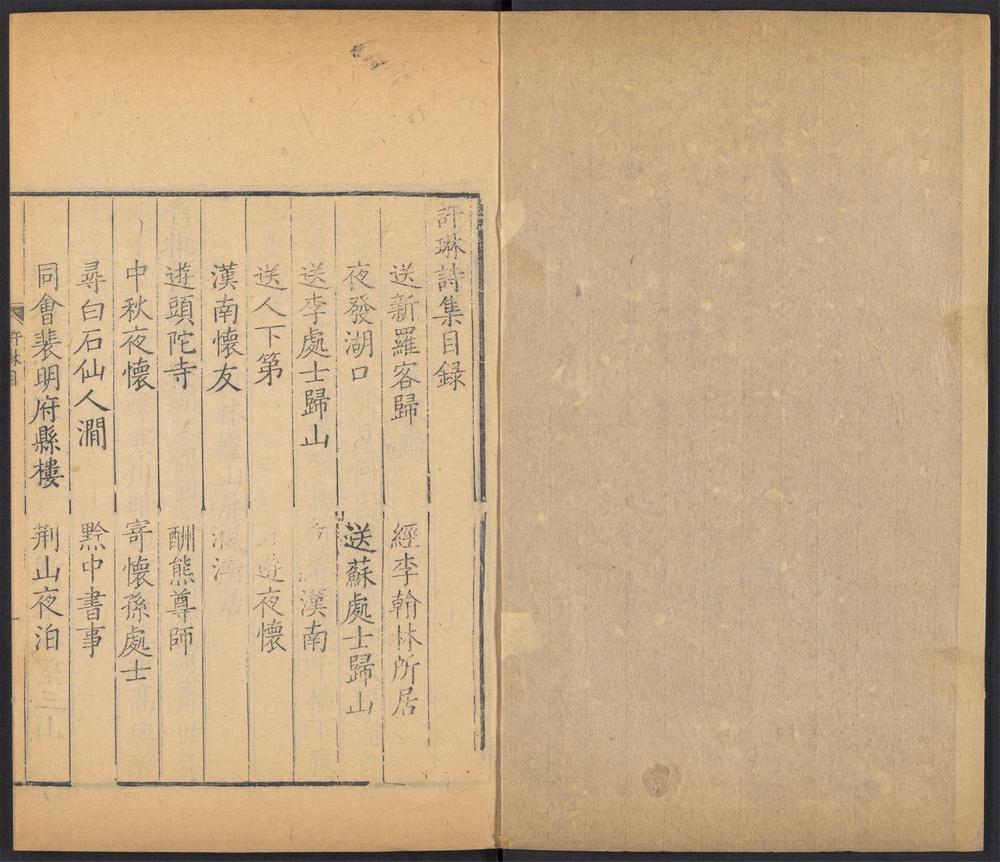 許琳詩集目録
送新羅客歸　經李翰林所居
夜發湖口　送蘇處士歸山
送李處士歸山　漢南
送人下第　遊夜懷
漢南懷友
遊頭陀寺　酬熊尊師
中秋夜懷　寄懷孫處士
尋白石仙人澗　黔中書事
同會裴明府縣樓　荆山夜泊